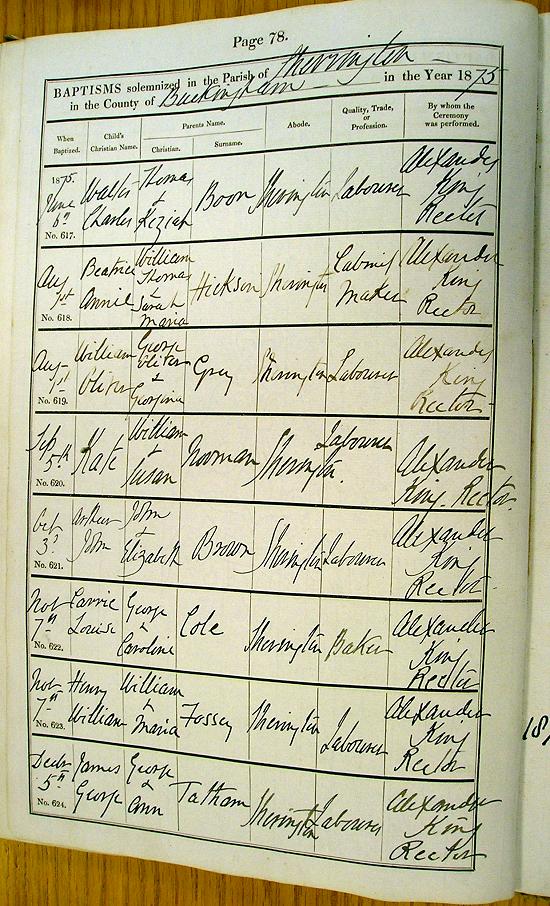 Page 78.
BAPTISMS solemnized in the Parish of Sherrington
in the County of Buckingham in the Year 1875
When Baptized. Child's Christian Name. Parents Name. Christian. Surname. Abode. Quality, Trade, or Profession. By whom the Ceremony was performed.
1875. June 6th No. 617. Walter Charles Thomas & Keziah Boon Sherington Labourer Alexander King Rector
Aug 1st No. 618. Beatrice Annie William Thomas & Sarah Maria Hickson Sherington Cabinet Maker Alexander King Rector
Aug 1st No. 619. William Oliver George Oliver & Georgina Grey Sherington Labourer Alexander King Rector
Sep 5th No. 620. Kate William & Susan Norman Sherington. Labourer Alexander King. Rector.
Oct 3d No. 621. Arthur John John & Elizabeth Brown Sherington Labourer Alexander King Rector
Nov 7th No. 622. Carrie Louise George & Caroline Cole Sherington Baker Alexander King Rector
Nov 7th No. 623. Henry William William & Maria Fossey Sherington Labourer Alexander King Rector
Decbr 5th No. 624. James George George & Ann Tatham Sherington Labourer Alexander King Rector
18